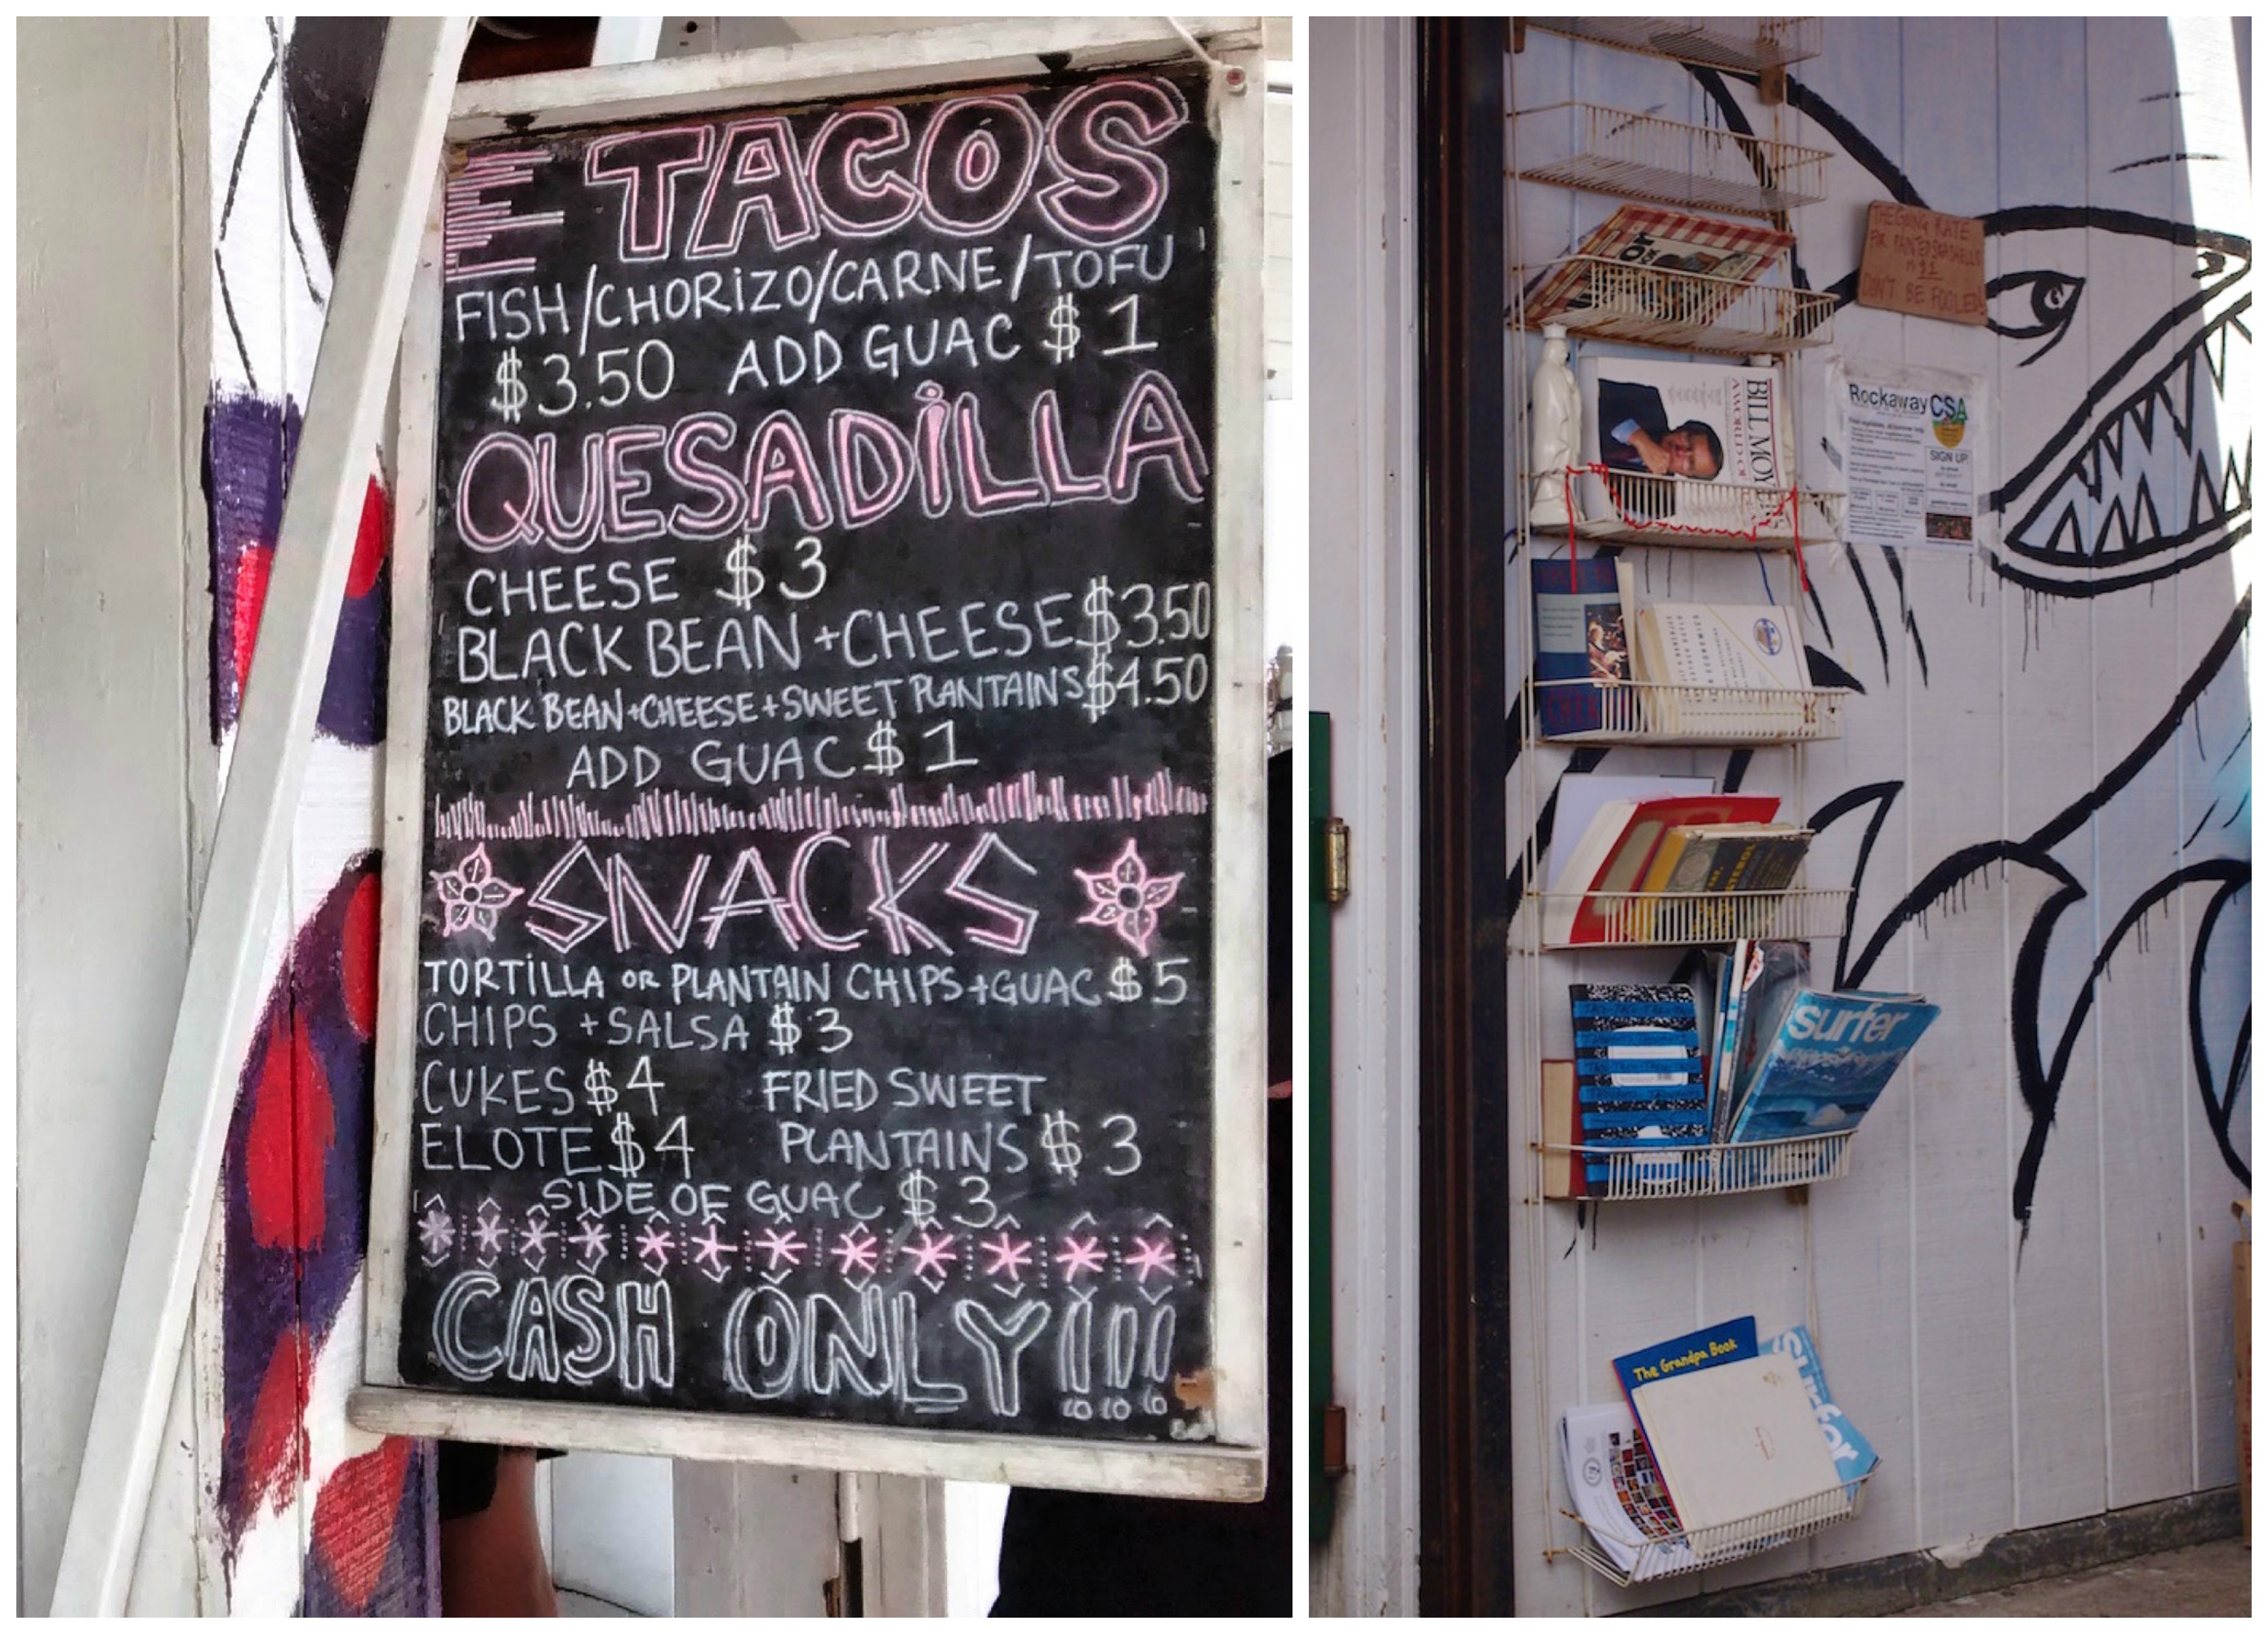 E TACOS
FISH/CHORiZO/CARNE/TOFU
$3.50 ADD GUAC $1
QUESADiLLA
CHEESE $3
BLACK BEAN +CHEESE $3.50
BLACK BEAN+CHEESE+SWEET PLANTAINS $4.50
ADD GUAC $1
SNACKS
TORTiLLA OR PLANTAIN CHIPS+GUAC $5
CHIPS +SALSA $3
CUKES $4 FRIED SWEET
ELOTE $4 PLANTAINS $3
SIDE OF GUAC $3
CASH ONLY!!!
THE GOING RATE
IS $1
DON'T BE FOOLED
BILL MOYERS
Rockaway CSA
SIGN UP
surfer
The Grandpa Book
surfer